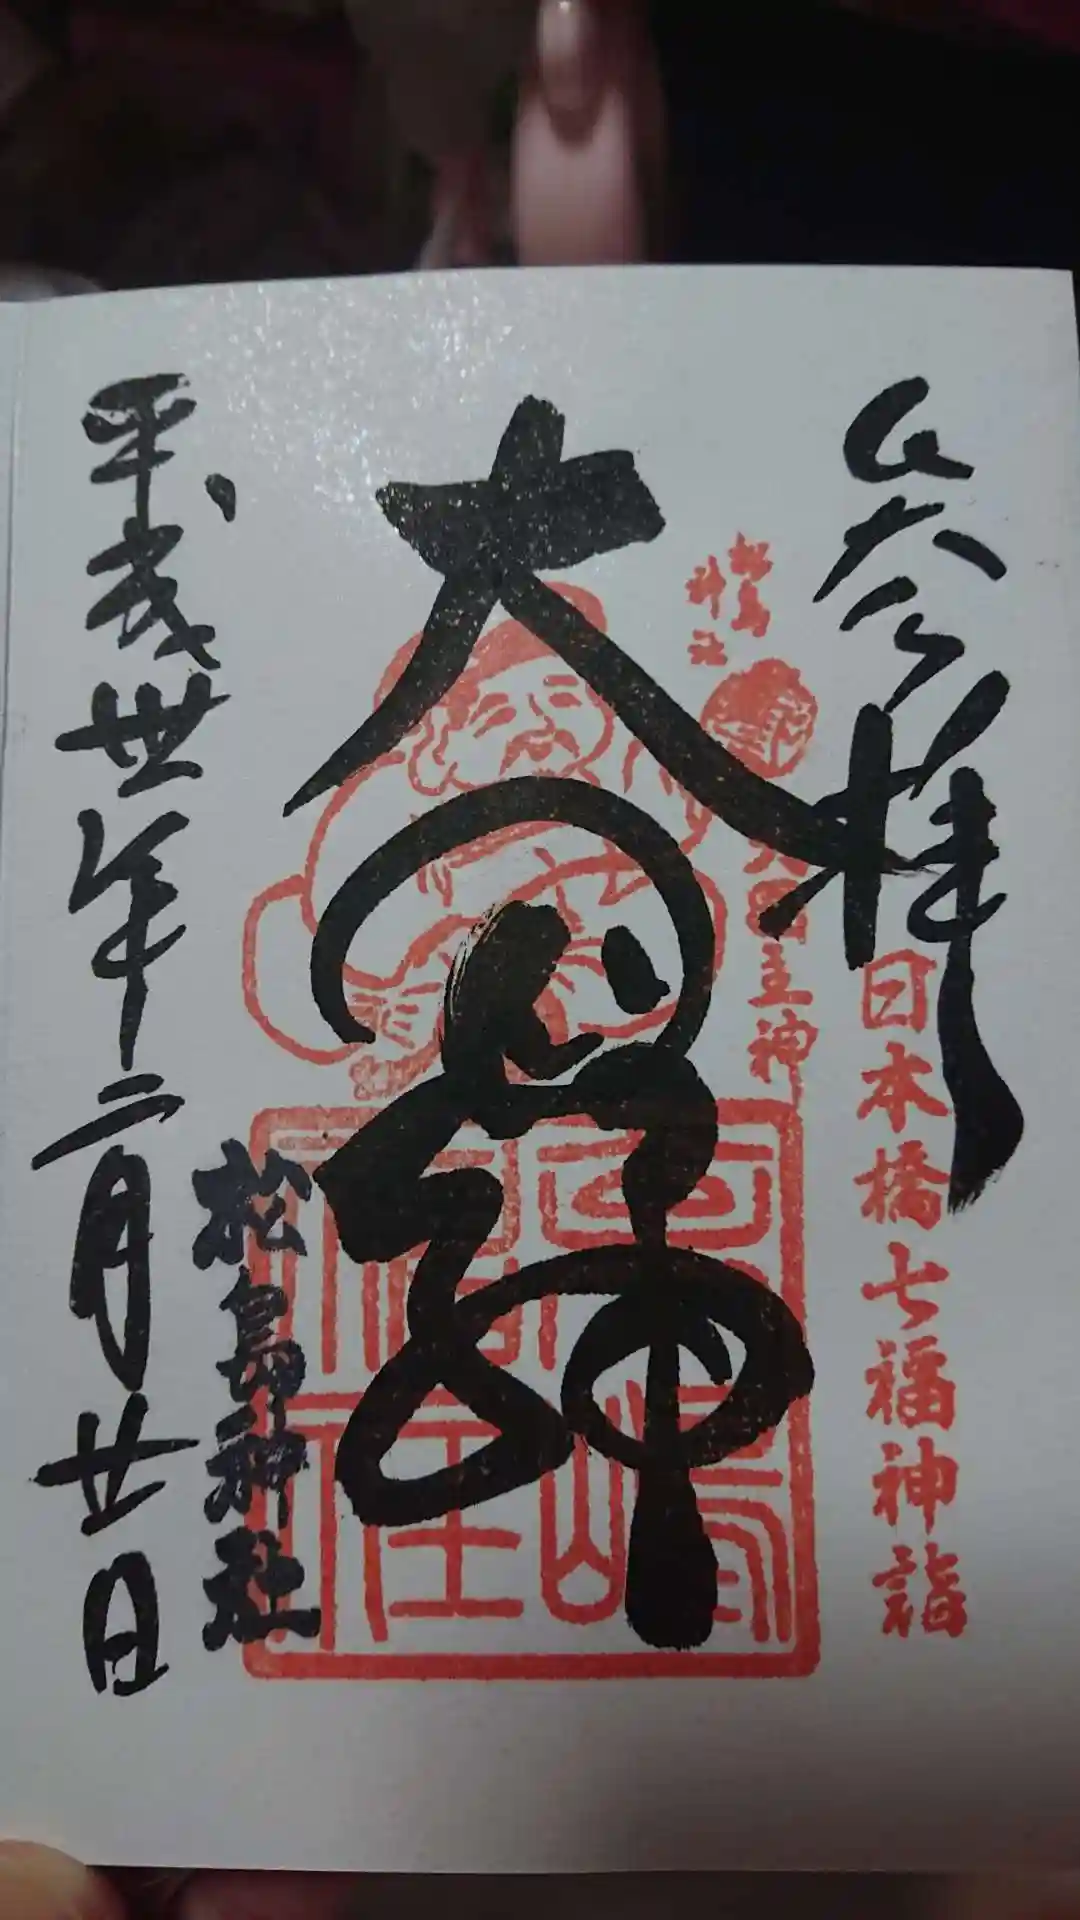 参拝
日本橋七福神詣
松島
神社
大国主神
大國神
松島神社
平成卅年二月廿日